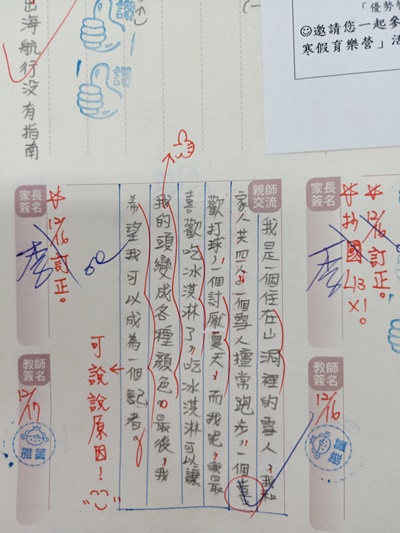 「優勢
☺邀請您一起參
寒假育樂營」活
家長簽名
*12/16訂正。
*抄國L13×1。
教師簽名
12/16
親師交流
我是一個住在山洞裡的雪人,我和
家人共四人,一個雪人擅常跑步,一個喜
歡打球,一個討厭夏天,而我呢,我最
喜歡吃冰淇淋了,吃冰淇淋可以讓
我的頭變成各種顏色。最後,我
希望我可以成為一個記者。
可說說原因!
家長簽名
*12/16訂正。
教師簽名
12/17
讚
讚
出海航行没有指南